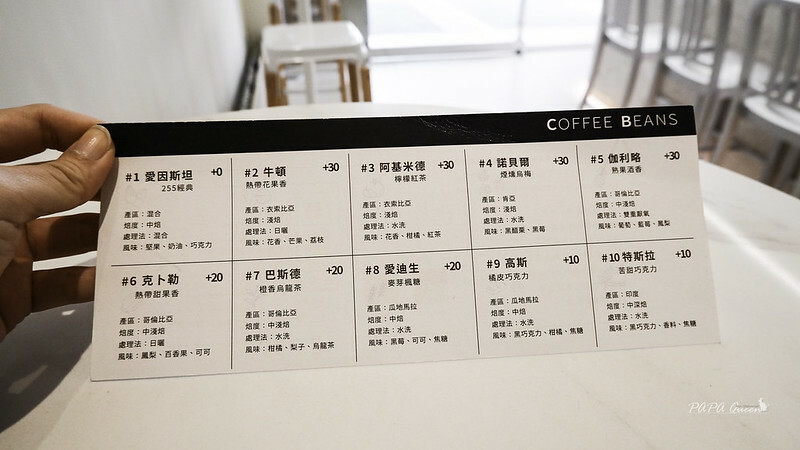 COFFEE BEANS
#1 愛因斯坦 +0
255經典
產區：混合
焙度：中焙
處理法：混合
風味：堅果、奶油、巧克力
#2 牛頓 +30
熱帶花果香
產區：衣索比亞
焙度：淺焙
處理法：日曬
風味：花香、芒果、荔枝
#3 阿基米德 +30
檸檬紅茶
產區：衣索比亞
焙度：淺焙
處理法：水洗
風味：花香、柑橘、紅茶
#4 諾貝爾 +30
煙燻烏梅
產區：肯亞
焙度：淺焙
處理法：水洗
風味：黑醋栗、黑莓
#5 伽利略 +30
熟果酒香
產區：哥倫比亞
焙度：中淺焙
處理法：雙重厭氧
風味：葡萄、藍莓、鳳梨
#6 克卜勒 +20
熱帶甜果香
產區：哥倫比亞
焙度：中淺焙
處理法：日曬
風味：鳳梨、百香果、可可
#7 巴斯德 +20
橙香烏龍茶
產區：哥倫比亞
焙度：中淺焙
處理法：水洗
風味：柑橘、梨子、烏龍茶
#8 愛迪生 +20
麥芽楓糖
產區：瓜地馬拉
焙度：中焙
處理法：水洗
風味：黑莓、可可、焦糖
#9 高斯 +10
橘皮巧克力
產區：瓜地馬拉
焙度：中焙
處理法：水洗
風味：黑巧克力、柑橘、焦糖
#10 特斯拉 +10
苦甜巧克力
產區：印度
焙度：中深焙
處理法：水洗
風味：黑巧克力、香料、焦糖
PAPA Queen